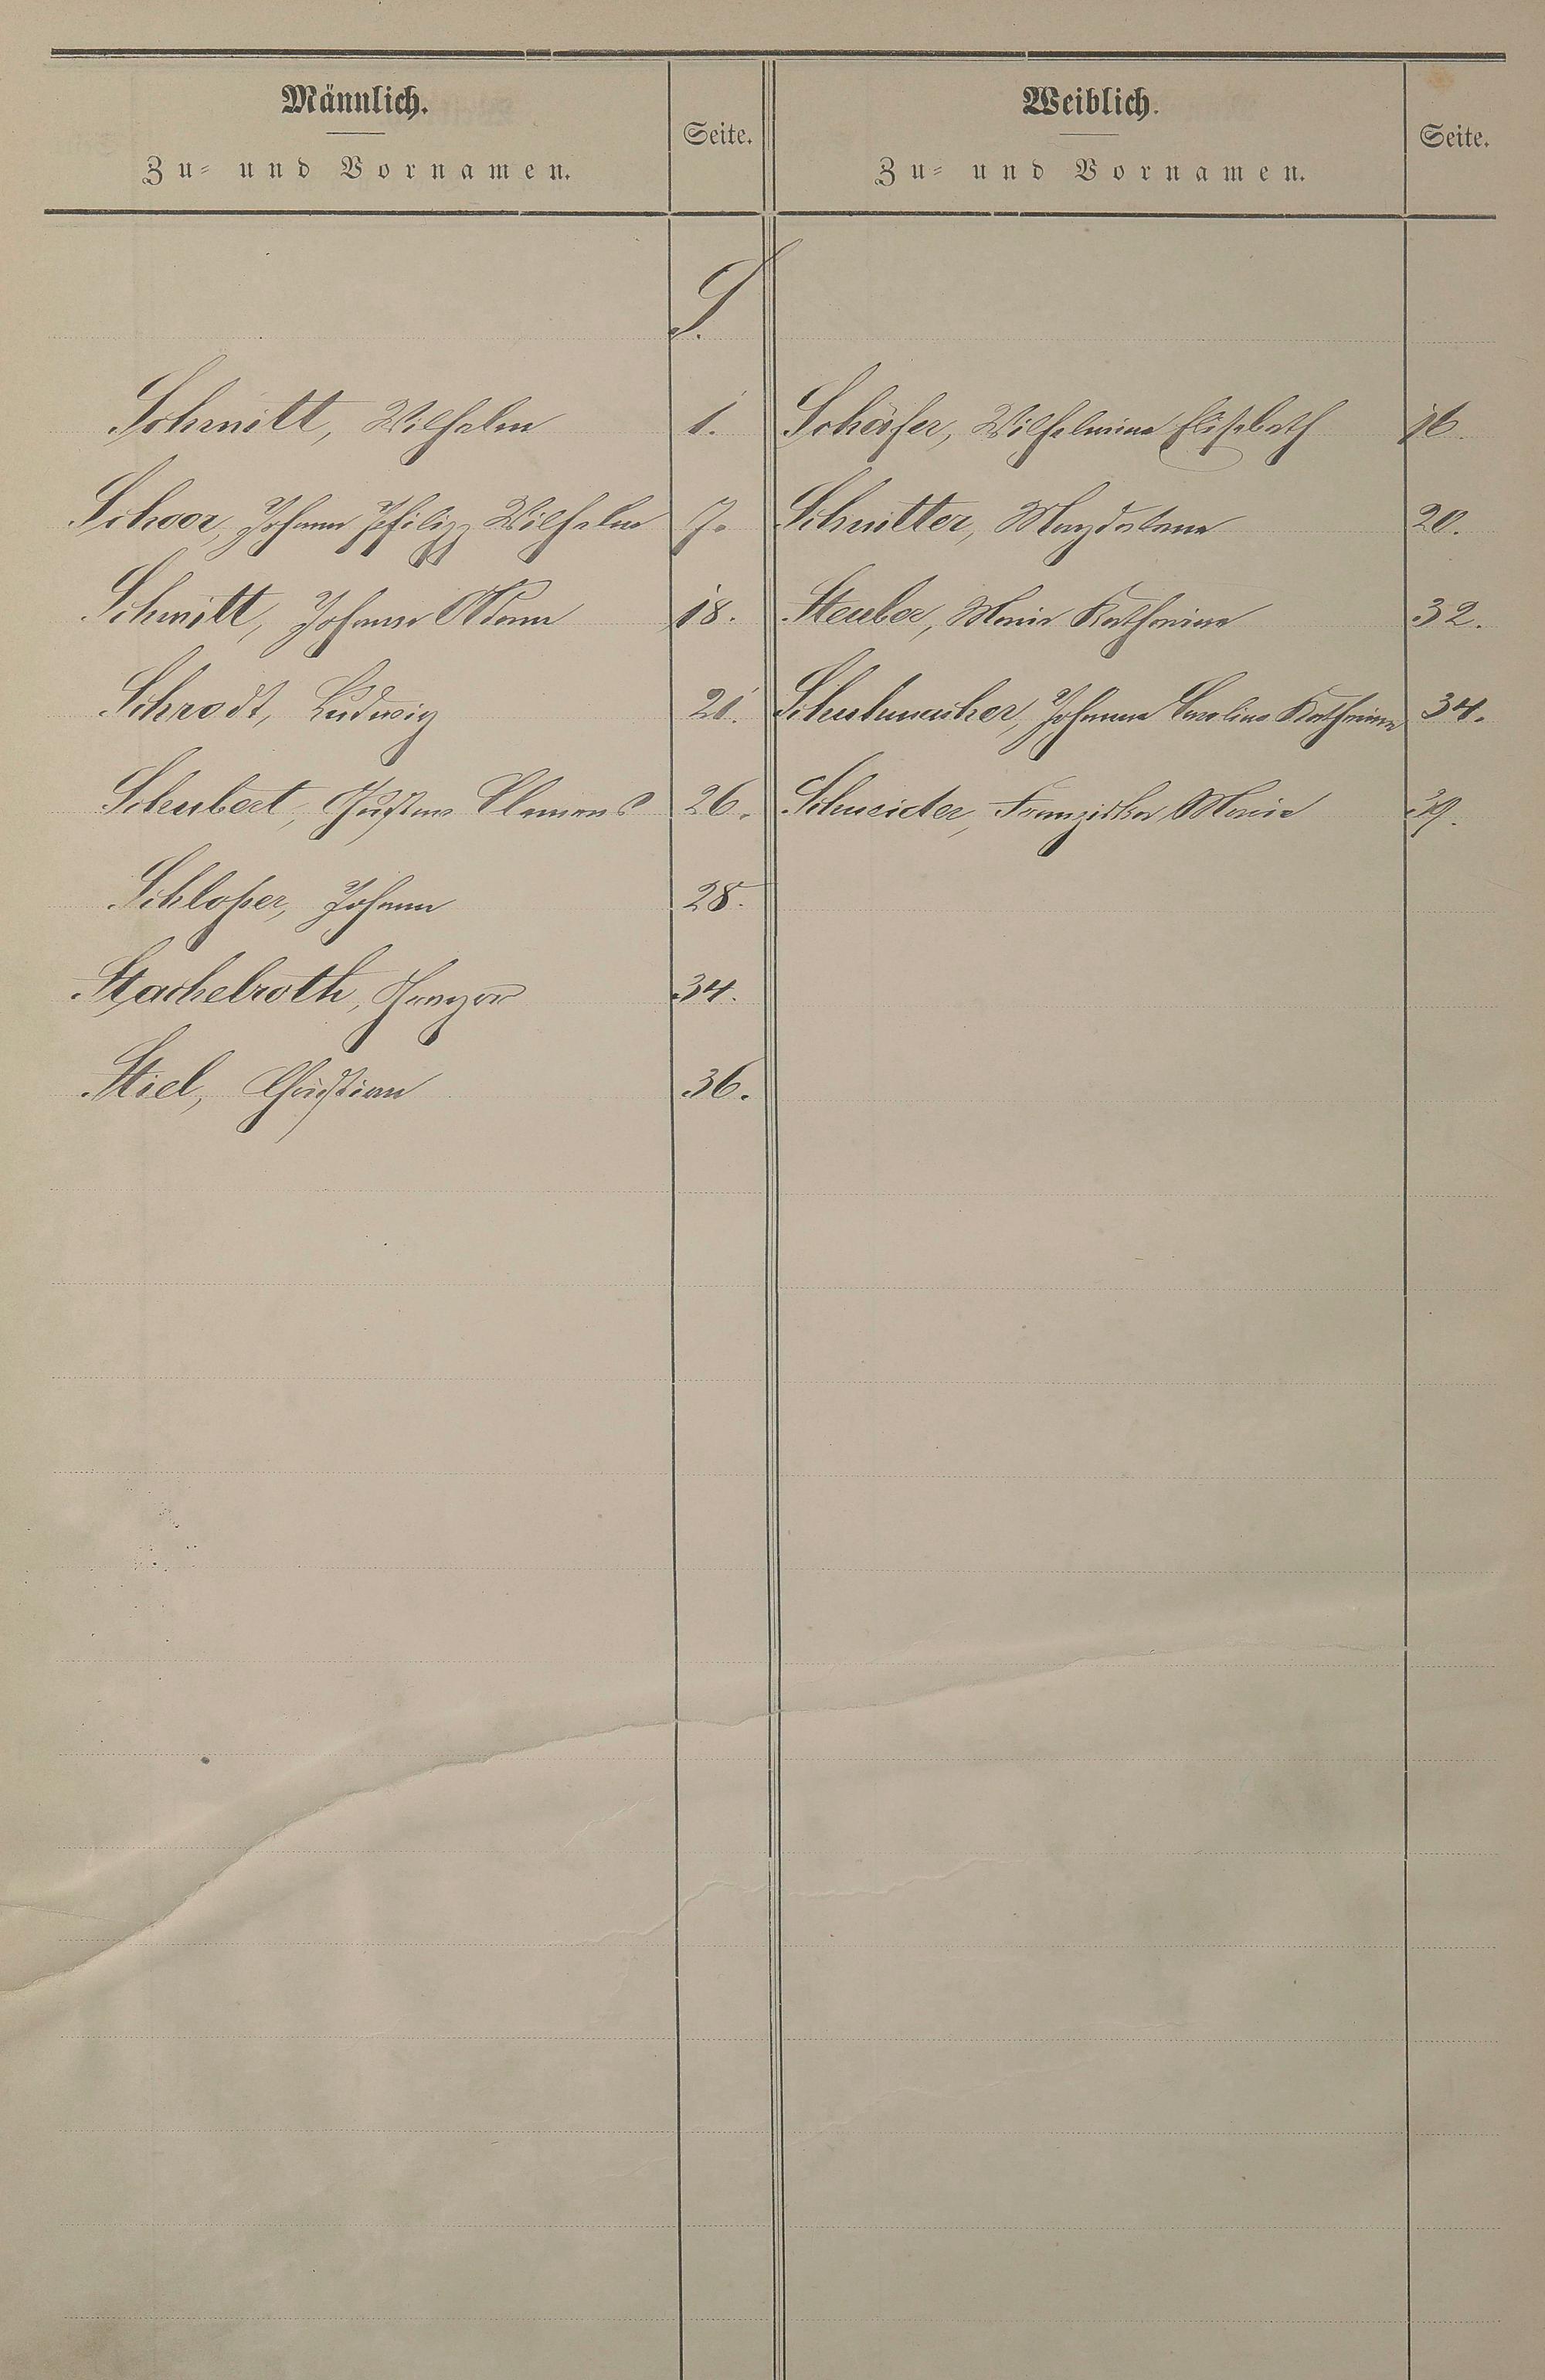 Männlich.
Zu- und Vornamen.
Seite.
Weiblich.
Zu- und Vornamen.
Seite.
S.
Schmitt, Wilhelm 1. Schäfer, Wilhelmina Elisabeth 16.
Schoor, Johann Philipp Wilhelm 7. Schnitter, Magdalena 20.
Schmitt, Johann Adam 18. Steuber, Maria Katharina 32.
Schrodt, Ludwig 21. Schuhmacher, Johanna Carolina Katharina 34.
Schubert, Gustav Clemens 26. Schneider, Franziska Maria 39.
Schloßer, Johann 28.
Stachelroth, 34.
Stiel, Christian 36.